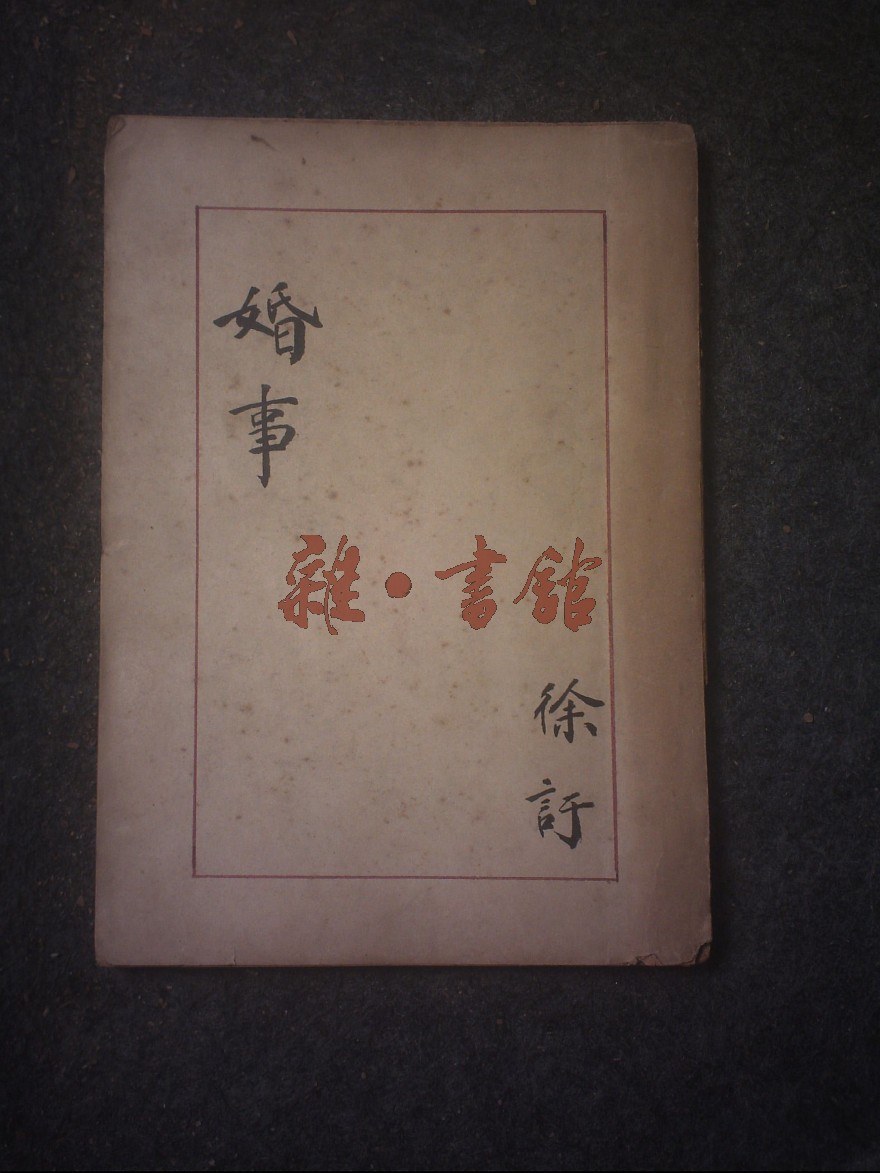 婚事
雜·書館
徐訏